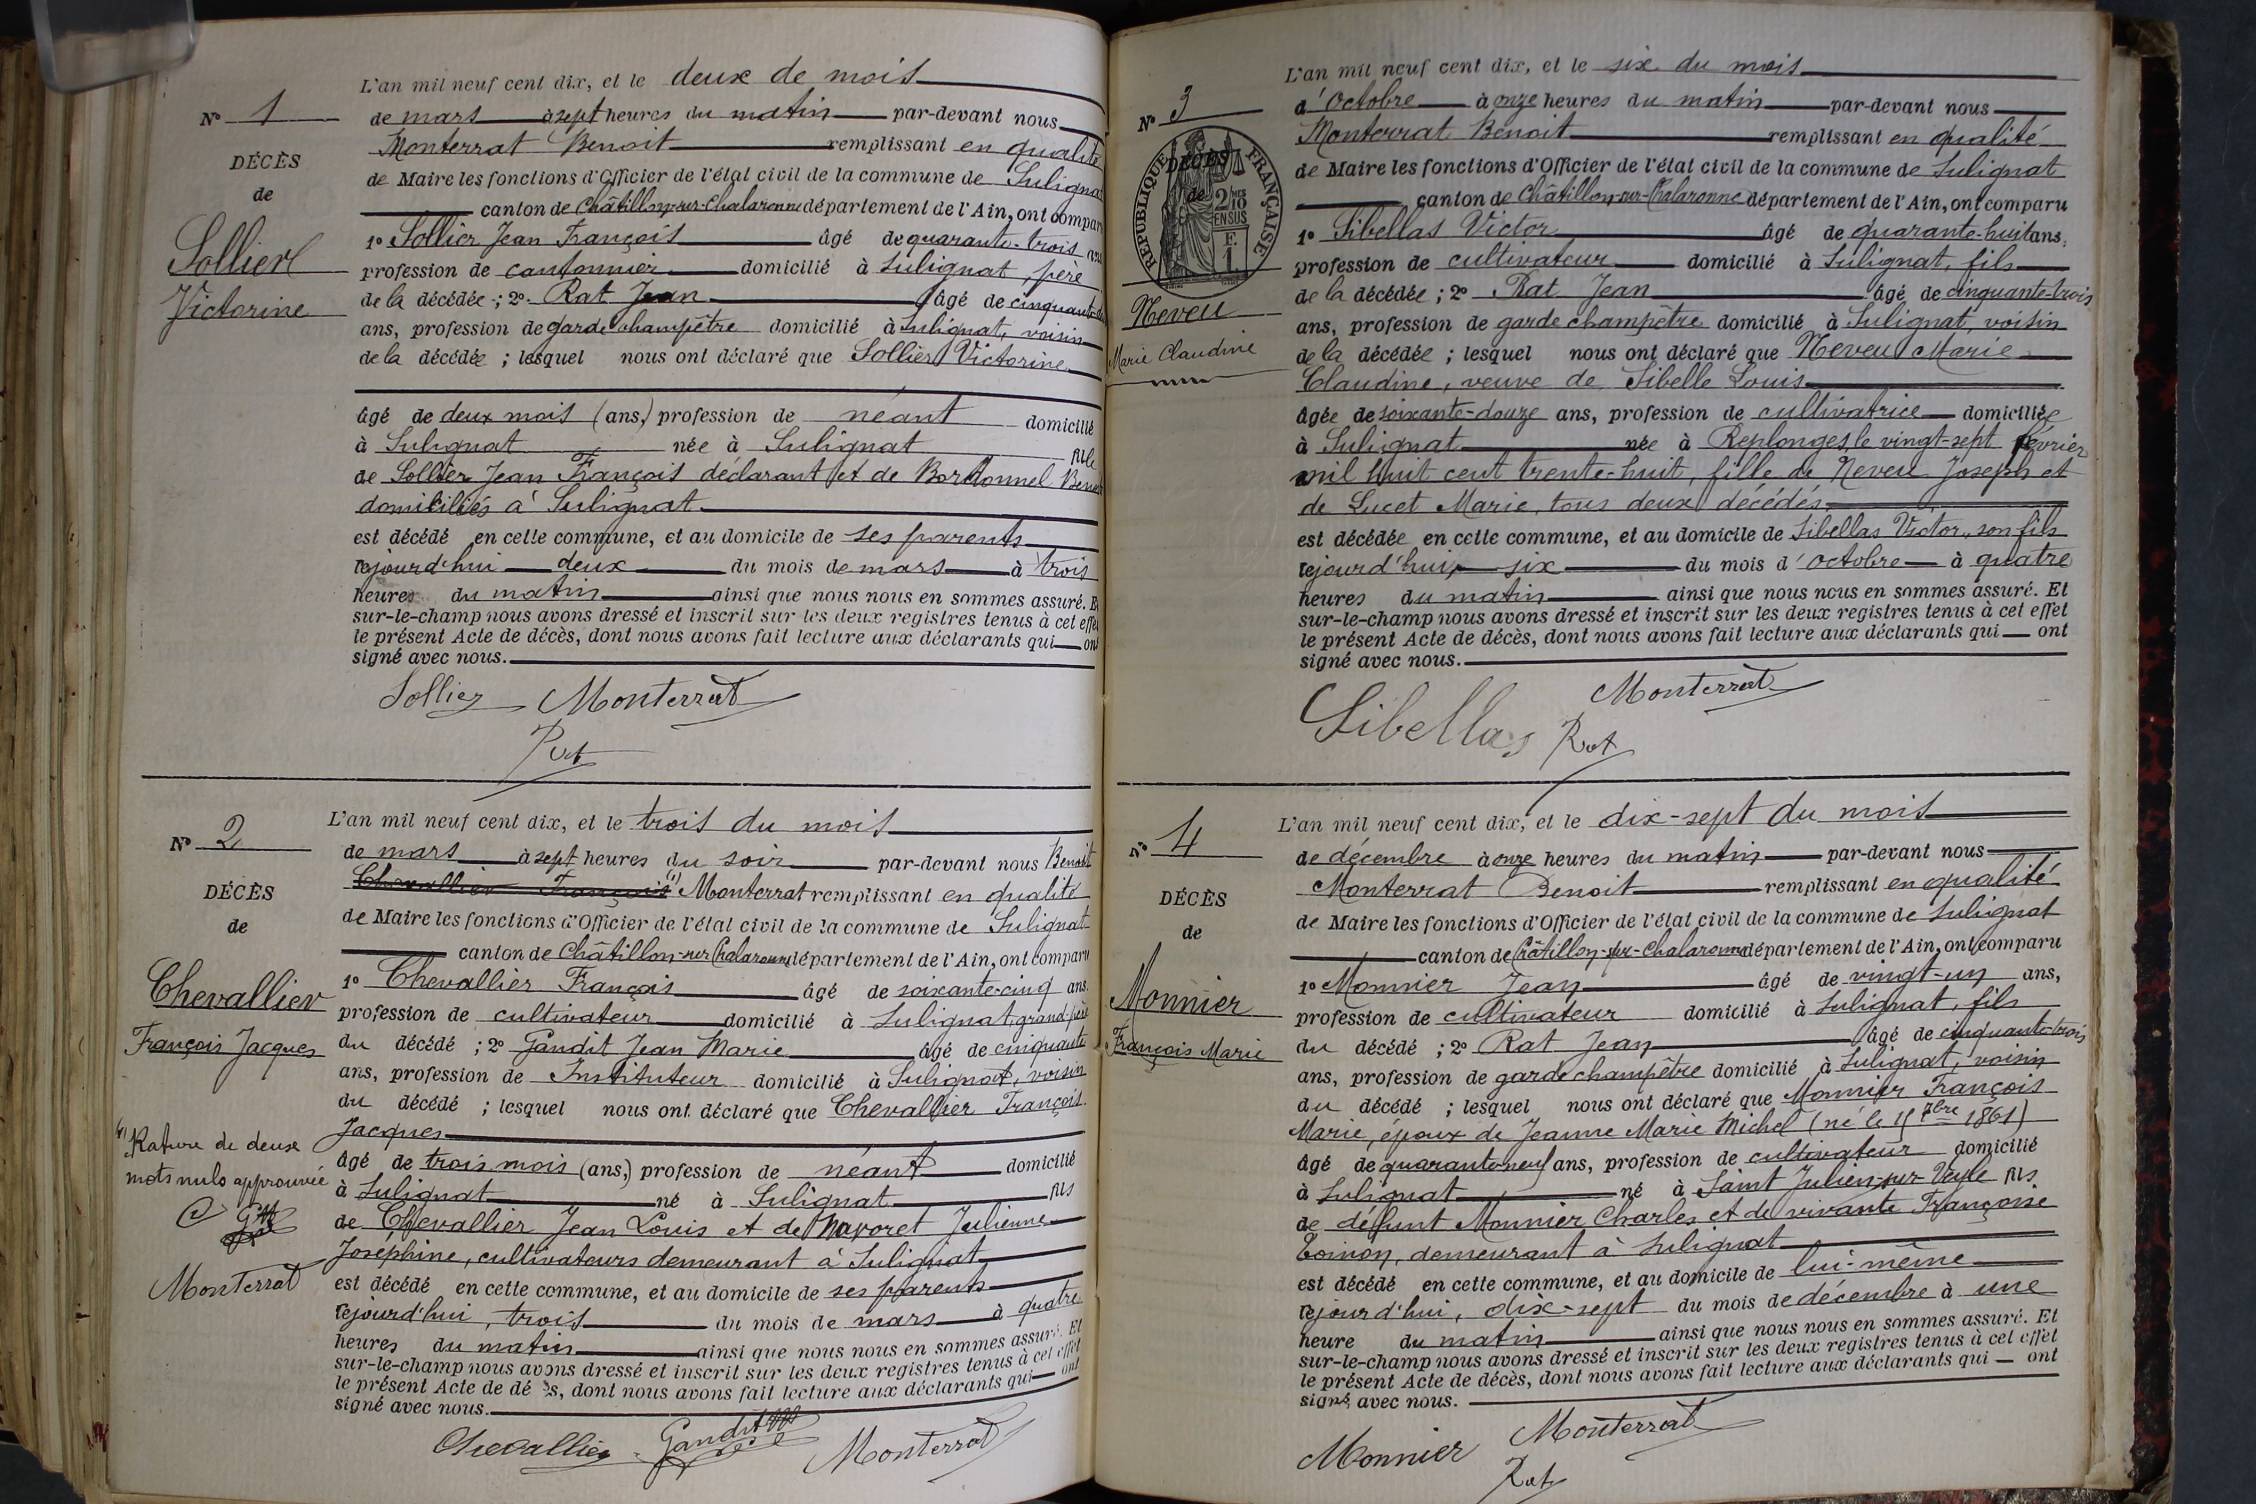 L'an mil neuf cent dix, et le deux de mois
N° 1
de mars à sept heures du matin par-devant nous
Monterrat Benoit remplissant en qualité
DÉCÈS
de Maire les fonctions d'Officier de l'état civil de la commune de Sulignat
de
canton de Châtillon-sur-Chalaronne département de l'Ain, ont comparu
Sollier
1° Sollier Jean François âgé de quarante-trois ans
profession de cantonnier domicilié à Sulignat, père
Victorine
de la décédée ; 2° Rat Jean âgé de
ans, profession de garde champêtre domicilié à Sulignat, voisin
de la décédée ; lesquel nous ont déclaré que Sollier Victorine
âgé de deux mois (ans,) profession de néant domicilié
à Sulignat née à Sulignat fille
de Sollier Jean François déclarant et de
domiciliés à Sulignat
est décédé en cette commune, et au domicile de ses parents
cejourd'hui deux du mois de mars à trois
heures du matin ainsi que nous nous en sommes assuré. Et
sur-le-champ nous avons dressé et inscrit sur les deux registres tenus à cet effet
le présent Acte de décès, dont nous avons fait lecture aux déclarants qui ont
signé avec nous.
Sollier Monterrat
Rat
N° 2
L'an mil neuf cent dix, et le trois du mois
de mars à sept heures du soir par-devant nous Benoit
Chevallier François (1) Monterrat remplissant en qualité
DÉCÈS
de Maire les fonctions d'Officier de l'état civil de la commune de Sulignat
de
canton de Châtillon-sur-Chalaronne département de l'Ain, ont comparu
Chevallier
1° Chevallier François âgé de soixante-cinq ans
profession de cultivateur domicilié à Sulignat, grand-père
François Jacques
du décédé ; 2° Gandit Jean Marie âgé de cinquante
ans, profession de Instituteur domicilié à Sulignat, voisin
du décédé ; lesquel nous ont déclaré que Chevallier François
Jacques
(1) Rature de deux
mots nuls approuvée
C GM
Monterrat
âgé de trois mois (ans,) profession de néant domicilié
à Sulignat né à Sulignat fils
de Chevallier Jean Louis et de Navoret Julienne
Joséphine, cultivateurs demeurant à Sulignat
est décédé en cette commune, et au domicile de ses parents
cejourd'hui, trois du mois de mars à quatre
heures du matin ainsi que nous nous en sommes assuré. Et
sur-le-champ nous avons dressé et inscrit sur les deux registres tenus à cet effet
le présent Acte de décès, dont nous avons fait lecture aux déclarants qui ont
signé avec nous.
Chevallier Gandit Monterrat
L'an mil neuf cent dix, et le six du mois
N° 3
d'octobre à onze heures du matin par-devant nous
Monterrat Benoit remplissant en qualité
DÉCÈS
de
RÉPUBLIQUE FRANÇAISE
2/10 EN SUS
F. 1
de Maire les fonctions d'Officier de l'état civil de la commune de Sulignat
canton de Châtillon-sur-Chalaronne département de l'Ain, ont comparu
1° Sibellas Victor âgé de quarante-huit ans,
profession de cultivateur domicilié à Sulignat, fils
de la décédée ; 2° Rat Jean âgé de cinquante-trois
Neveu
ans, profession de garde champêtre domicilié à Sulignat, voisin
Marie Claudine
de la décédée ; lesquel nous ont déclaré que Neveu Marie
Claudine, veuve de Sibelle Louis
âgée de soixante-douze ans, profession de cultivatrice domiciliée
à Sulignat née à Replonges, le vingt-sept février
mil huit cent trente-huit, fille de Neveu Joseph et
de Lucet Marie, tous deux décédés
est décédée en cette commune, et au domicile de Sibellas Victor, son fils
cejourd'hui, six du mois d'octobre à quatre
heures du matin ainsi que nous nous en sommes assuré. Et
sur-le-champ nous avons dressé et inscrit sur les deux registres tenus à cet effet
le présent Acte de décès, dont nous avons fait lecture aux déclarants qui ont
signé avec nous.
Monterrat
Sibellas Rat
N° 4
L'an mil neuf cent dix, et le dix-sept du mois
de décembre à onze heures du matin par-devant nous
Monterrat Benoit remplissant en qualité
DÉCÈS
de Maire les fonctions d'Officier de l'état civil de la commune de Sulignat
de
canton de Châtillon-sur-Chalaronne département de l'Ain, ont comparu
Monnier
1° Monnier Jean âgé de vingt-un ans,
profession de cultivateur domicilié à Sulignat, fils
François Marie
du décédé ; 2° Rat Jean âgé de cinquante-trois
ans, profession de garde champêtre domicilié à Sulignat, voisin
du décédé ; lesquel nous ont déclaré que Monnier François
Marie, époux de Jeanne Marie Michel (né le 15 7bre 1861)
âgé de quarante-neuf ans, profession de cultivateur domicilié
à Sulignat né à Saint Julien-sur-Veyle fils
de défunt Monnier Charles et de vivante Françoise
Toinon, demeurant à Sulignat
est décédé en cette commune, et au domicile de lui-même
cejourd'hui, dix-sept du mois de décembre à une
heure du matin ainsi que nous nous en sommes assuré. Et
sur-le-champ nous avons dressé et inscrit sur les deux registres tenus à cet effet
le présent Acte de décès, dont nous avons fait lecture aux déclarants qui ont
signé avec nous.
Monnier Monterrat
Rat